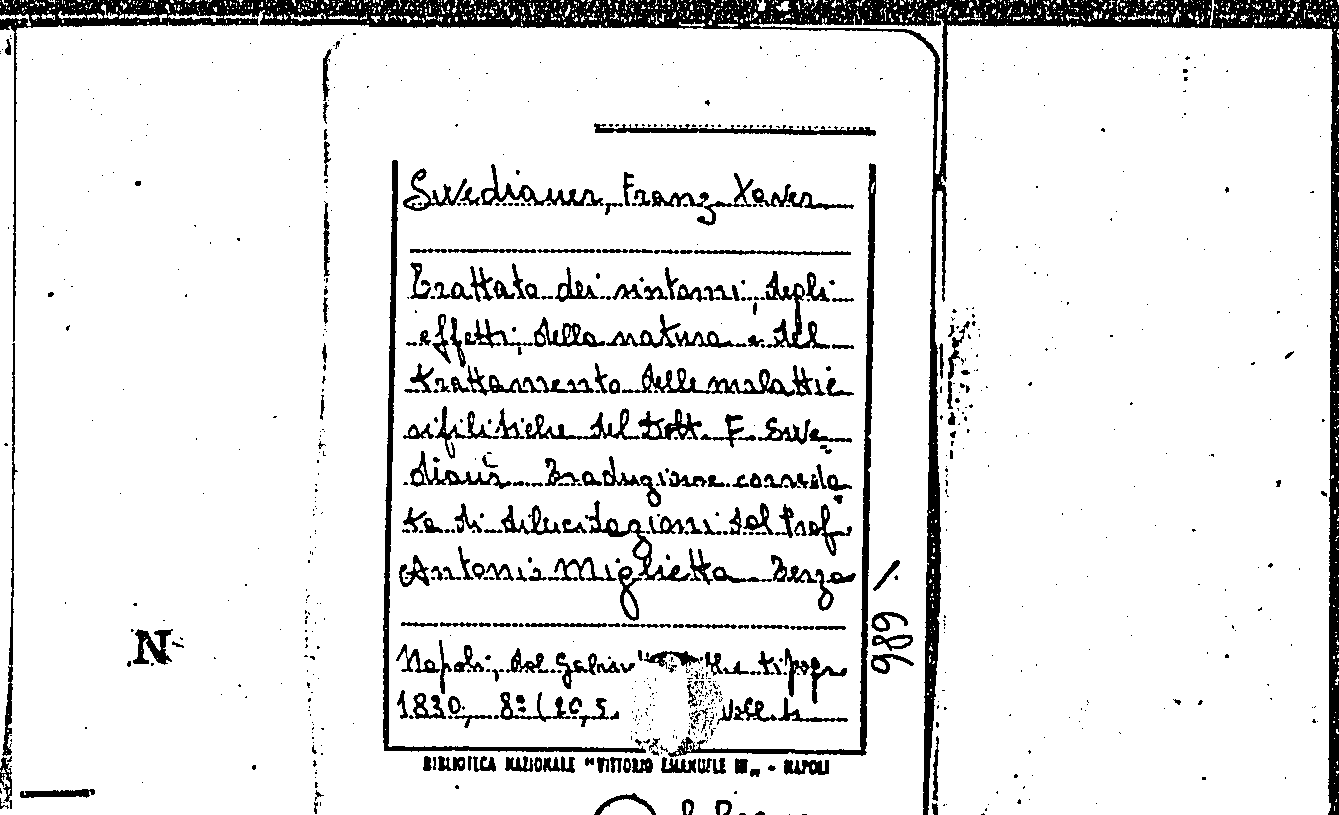 Swediauer, Franz Xaver
Trattato dei sintomi, degli
effetti, della natura e del
trattamento delle malattie
sifilitiche del Dott. F. Swe-
diaur Traduzione correda-
ta di dilucidazioni dal Prof.
Antonio Miglietta Terza
Napoli, dal tipogr
1830, 8° (20,5
989
N
BIBLIOTECA NAZIONALE "VITTORIO EMANUELE III" - NAPOLI